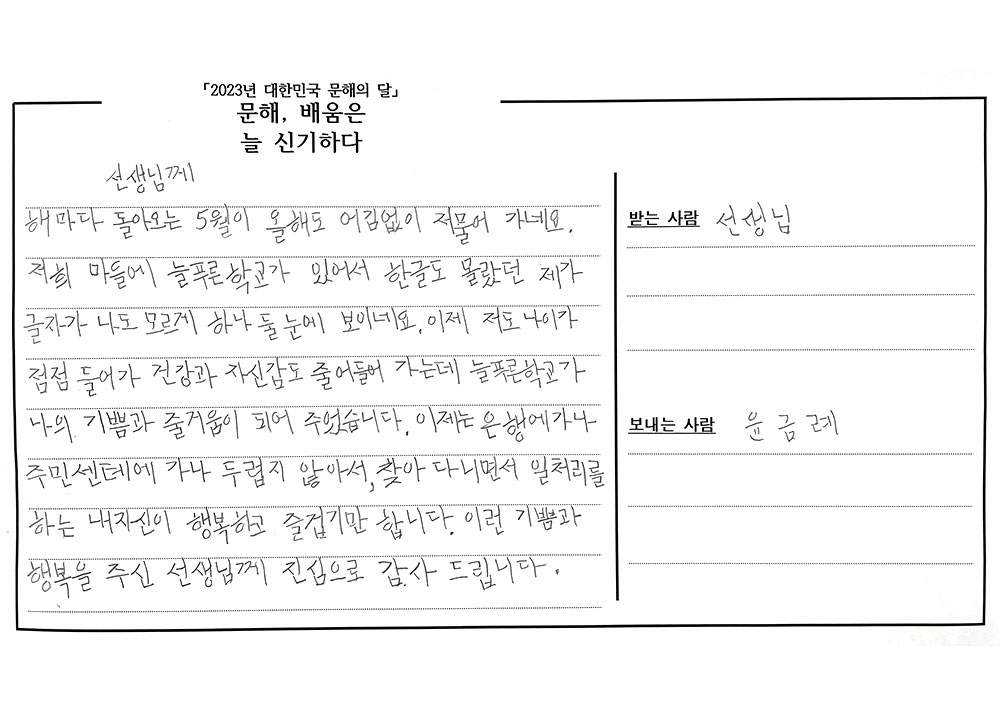 「2023년 대한민국 문해의 달」
문해, 배움은
늘 신기하다
선생님께
해마다 돌아오는 5월이 올해도 어김없이 저물어 가네요.
저희 마들에 늘푸른학교가 있어서 한글도 몰랐던 제가
글자가 나도 모르게 하나 둘 눈에 보이네요. 이제 저도 나이가
점점 들어가 건강과 자신감도 줄어들어 가는데 늘푸른학교가
나의 기쁨과 즐거움이 되어 주었습니다. 이제는 은행에가나
주민센테에 가나 두렵지 않아서, 찾아 다니면서 일처리를
하는 내자신이 행복하고 즐겁기만 합니다. 이런 기쁨과
행복을 주신 선생님께 진심으로 감사 드립니다.
받는 사람 선생님
보내는 사람 윤금례